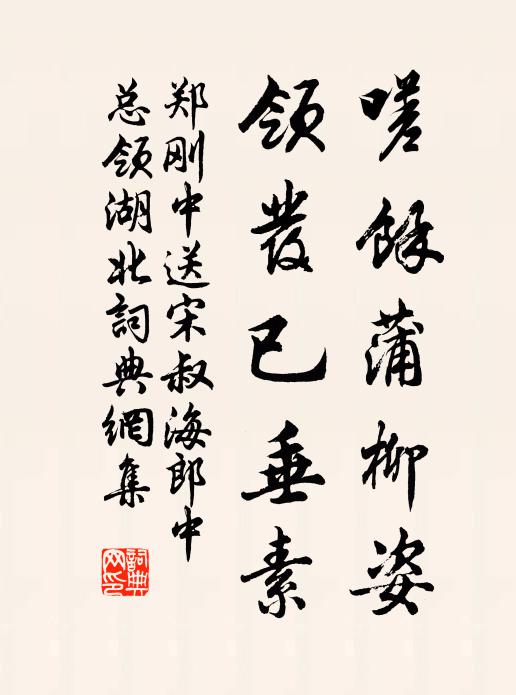 嗟餘蒲柳姿
領髮已垂素
郑刚中送宋叔海郎中
总领湖北詞典網集
詞典
网印